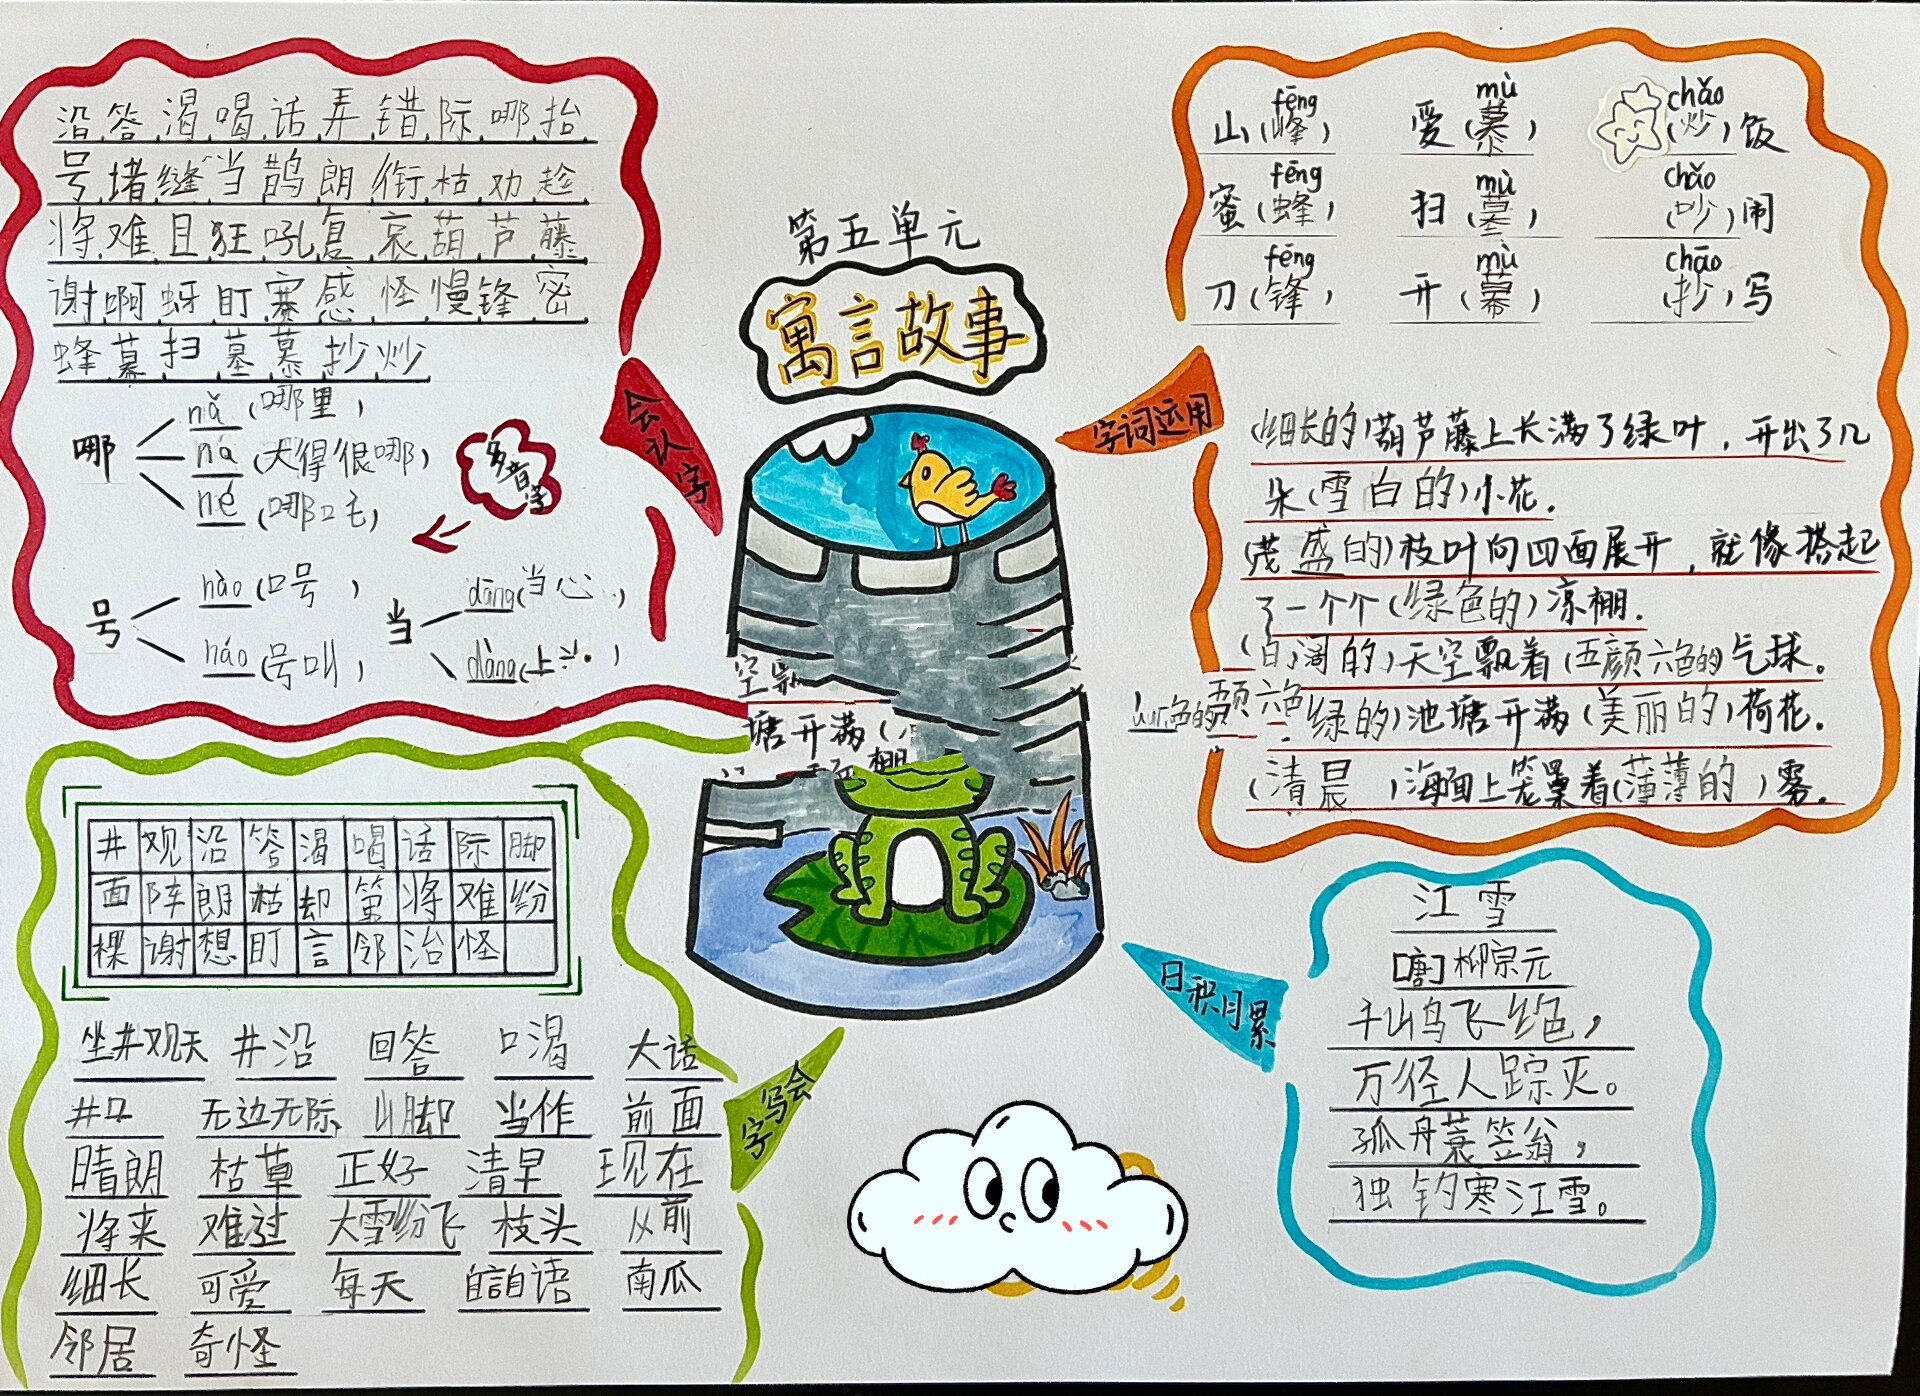 第五单元
寓言故事
会认字
沿 答 渴 喝 话 弄 错 际 哪 抬
号 堵 缝 当 鹊 朗 衔 枯 劝 趁
将 难 且 狂 吼 复 哀 葫 芦 藤
谢 啊 蚜 盯 赛 感 怪 慢 锋 密
蜂 幕 扫 墓 慕 抄 炒
多音字
哪
nǎ (哪里)
na (大得很哪)
né (哪吒)
号
hào (口号)
háo (号叫)
当
dāng (当心)
dàng (上
字词运用
fēng mù chǎo
山(峰) 爱(慕) (炒)饭
fēng mù chǎo
蜜(蜂) 扫(墓) (吵)闹
fēng mù chāo
刀(锋) 开(幕) (抄)写
(细长的)葫芦藤上长满了绿叶,开出了几
朵(雪白的)小花.
(茂盛的)枝叶向四面展开,就像搭起
了一个个(绿色的)凉棚.
的)天空飘着(五颜六色的)气球.
绿的)池塘开满(美丽的)荷花.
(清晨)海面上笼罩着(薄薄的)雾.
色的
颜六色
塘开满(
棚
会写字
井 观 沿 答 渴 喝 话 际 脚
面 阵 朗 枯 却 第 将 难 纷
棵 谢 想 盯 言 邻 治 怪
坐井观天 井沿 回答 口渴 大话
井口 无边无际 山脚 当作 前面
晴朗 枯草 正好 清早 现在
将来 难过 大雪纷飞 枝头 从前
细长 可爱 每天 自言自语 南瓜
邻居 奇怪
日积月累
江雪
[唐]柳宗元
千山鸟飞绝,
万径人踪灭。
孤舟蓑笠翁,
独钓寒江雪。